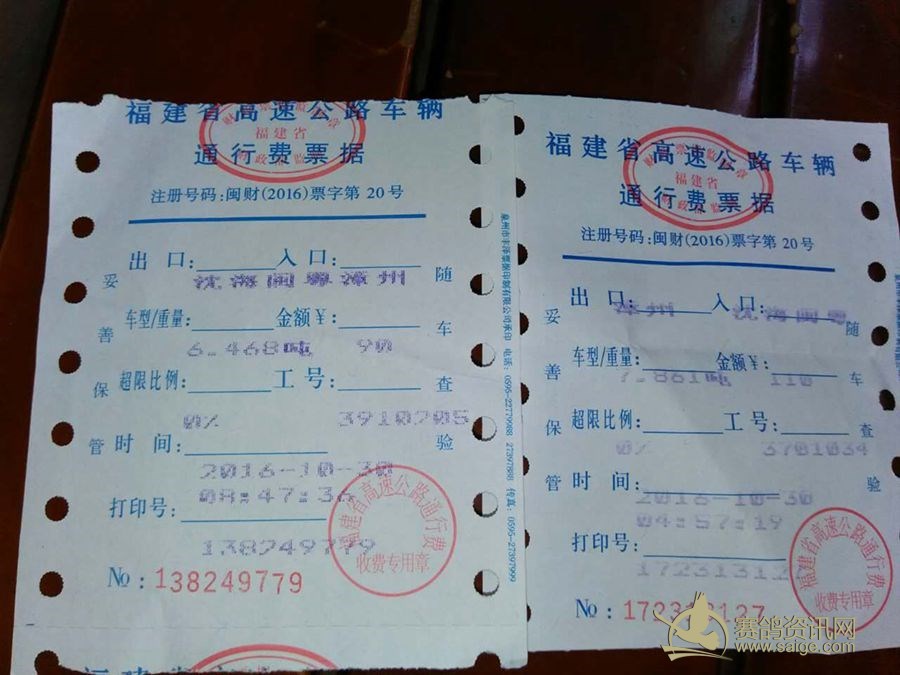 福建省高速公路车辆
通行费票据
福建省
注册号码:闽财(2016)票字第20号
出口: 入口:
沈海闽粤 漳州
车型/重量: 金额¥:
6.468吨 90
超限比例: 工号:
0% 3910205
时间:
2016-10-30
08:47:36
打印号:
138249779
№:138249779
妥善保管
随车查验
福建省高速公路通行费
收费专用章
泉州市丰泽票据印制有限公司承印 电话:0595-22779988 27397888 传真:0595-27397999
福建省高速公路车辆
通行费票据
福建省
注册号码:闽财(2016)票字第20号
出口: 入口:
漳州 沈海闽粤
车型/重量: 金额¥:
7.861吨 110
超限比例: 工号:
0% 3701034
时间:
2016-10-30
04:57:19
打印号:
№:172313127
妥善保管
随车查验
福建省高速公路通行费
收费专用章
赛鸽资讯网
www.saige.com